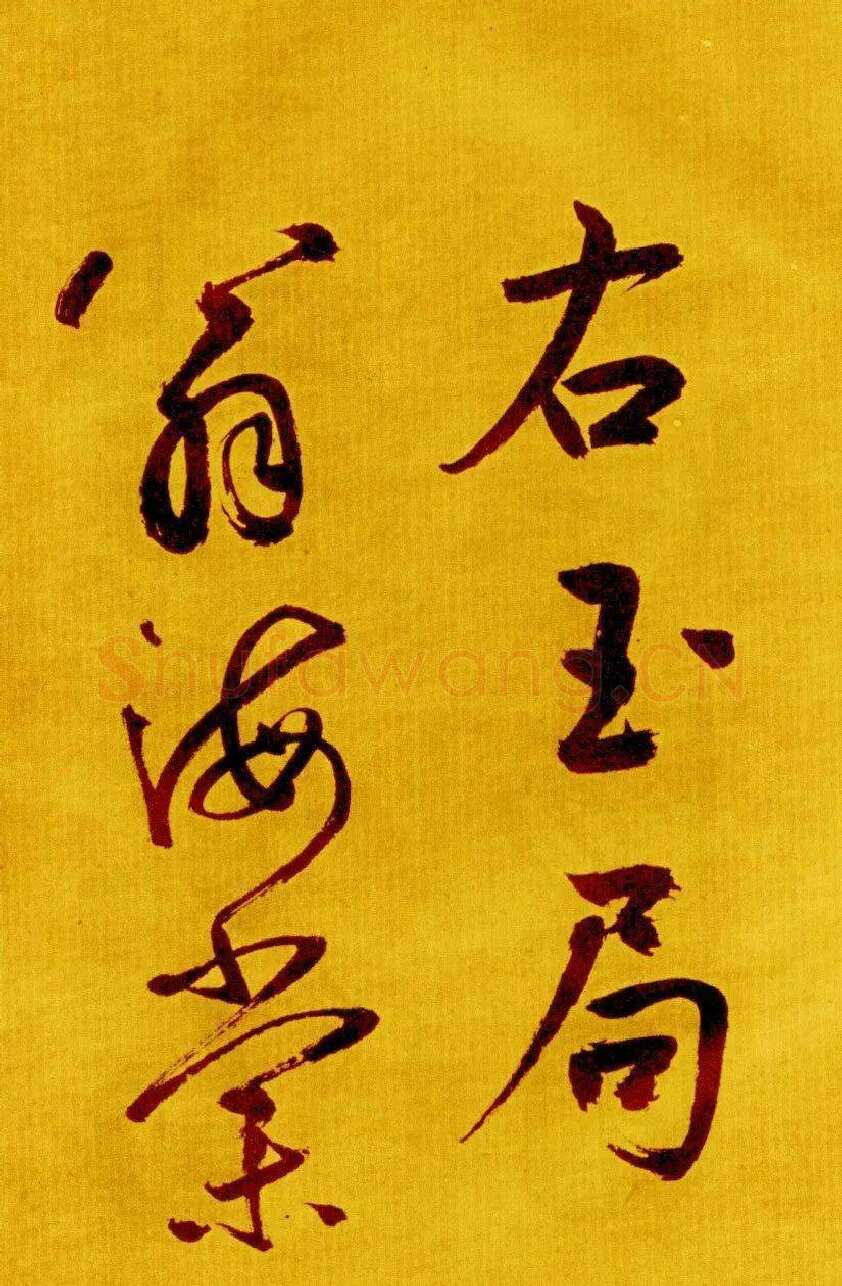 右玉局
翁海棠
Shufawang.CN